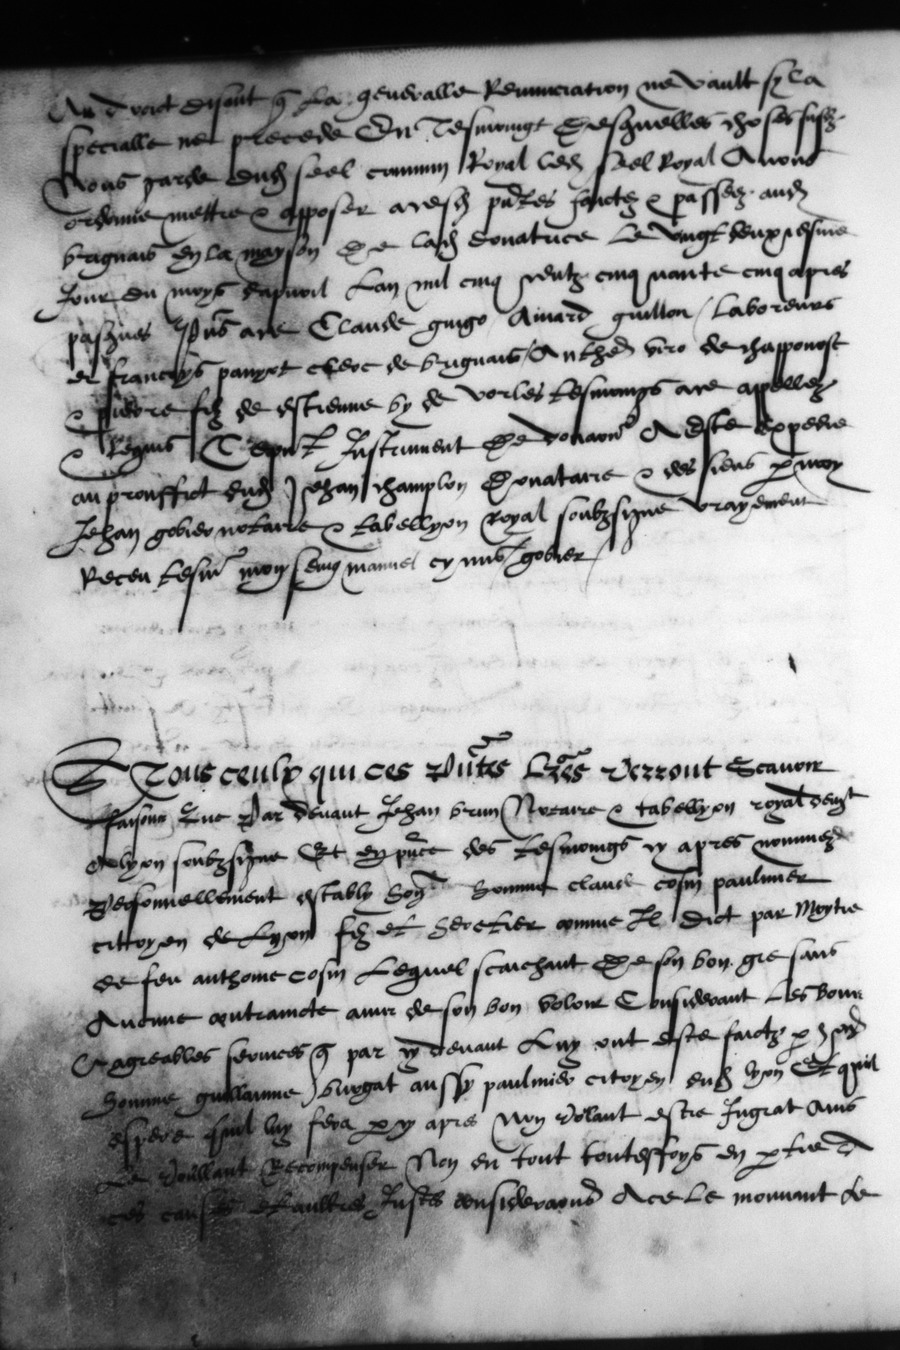 Au droict disant q la generalle Renunciation ne vault sy la
specialle ne precede En Tesmoing Desquelles choses susd
Nous garde dud seel commun Royal led seel Royal Avons
ordonne mettre & apposer a cesd pntes faictes & passees aud
brignais en la mayson De lad donatrice Le vingt deuxiesme
Jour du moys dapvril Lan mil cinq centz cinquante cinq apres
pasques Pns ad ce Claude guigo Aimard guillon Laboreurs
et francoys panyot clerc de brignais Anthe viro de chapponost
& pierre filz de estienne by de vorles tesmoings a ce appellez
& Requis Ce pnt Instrument De donaon A este expedie
au prouffict dud Jehan champlon Donataire & des siens p moy
Jehan gobier notaire & tabellyon Royal soubzsigne vrayement
Receu tesm mon seing manuel cy mis gobier
A Tous ceulx qui ces pntes Lres Verront Scavoir
faisons Que Par devant Jehan brun Notaire & tabellyon royal deust
a lyon soubzsigne Et en pnce des tesmoings cy apres nommez
Personnellement estably hon homme claude cosin paulmier
cittoyen de Lyon filz et heretier comme Il dict par Moytie
de feu anthoine cosin Lequel scaichant De son bon gre sans
Aucune contraincte ains de son bon voloir Considerant Les bons
& agreables services q par cy devant Luy ont este faictz p hon
homme guillaume burgat aussy paulmier citoyen dud lyon Et quil
espere quil luy fera p cy apres Non volant estre Ingrat Ains
Le voullant Recompenser Non en tout touteffoys en ptie A
ces causes et aultres Justes considerations A ce Le mouvant de